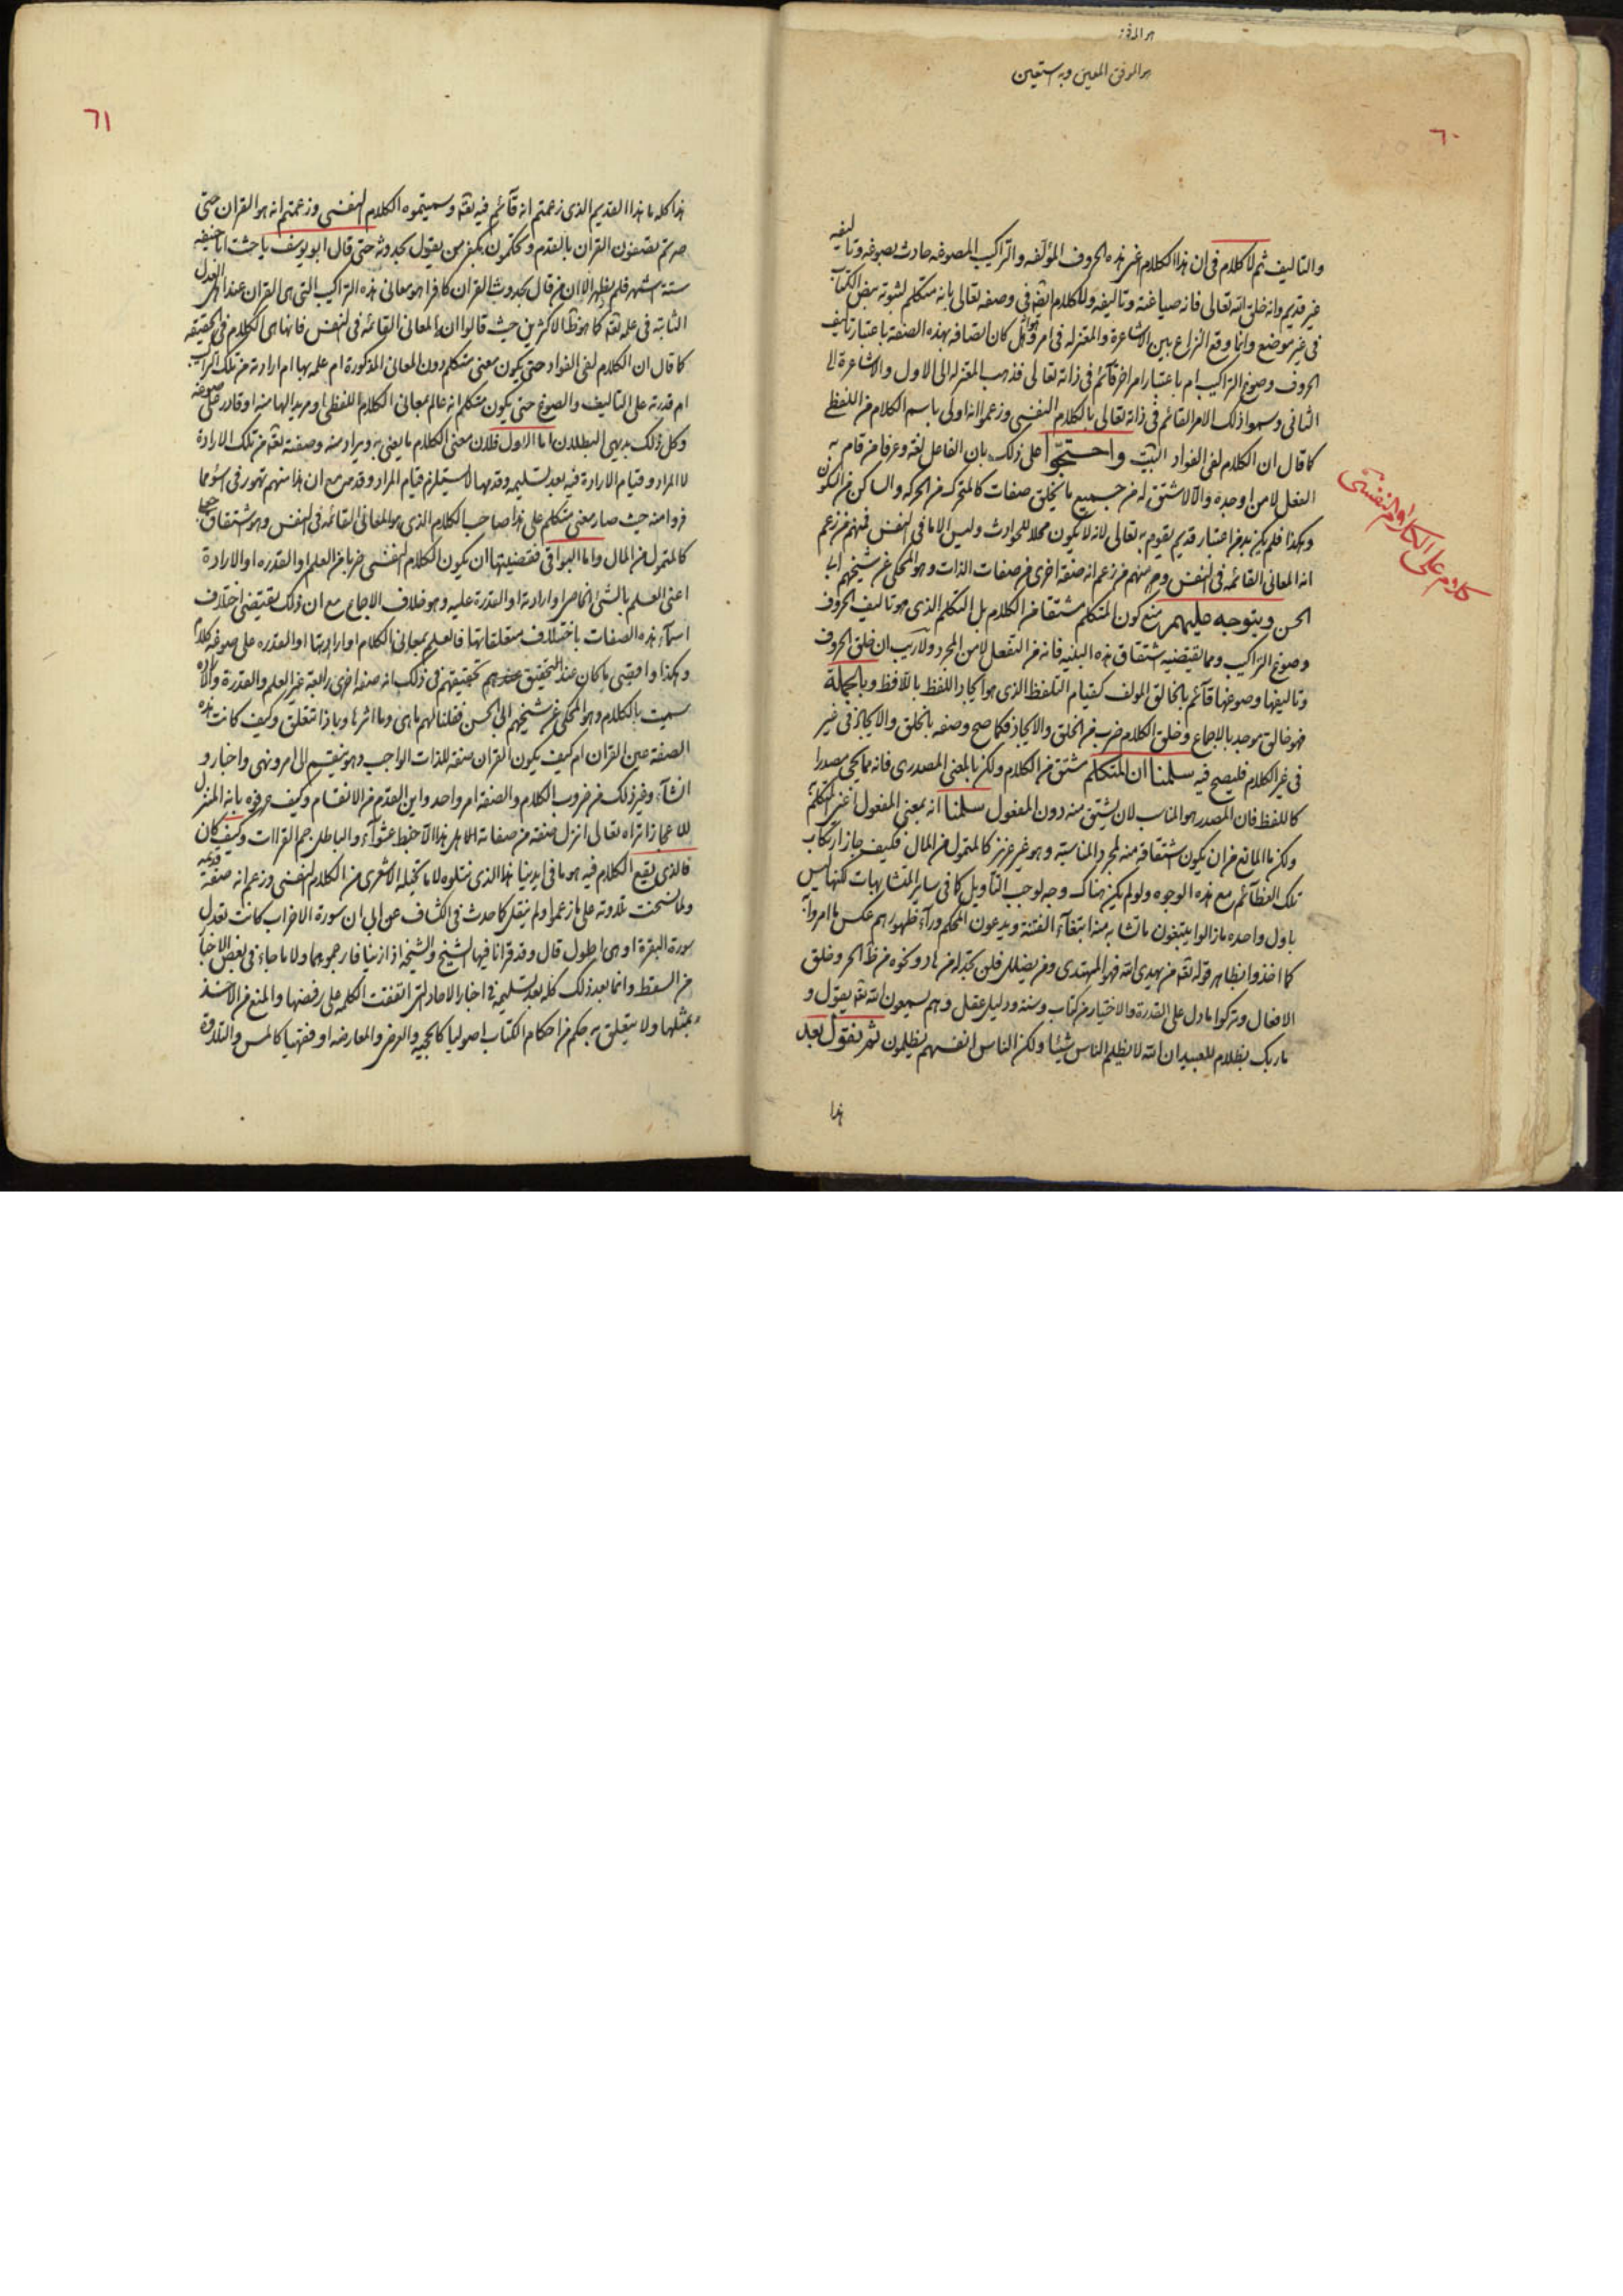 هو الموفق
هو الموفق المعين وبه استعين
٦٠
والتاليف ثم لا كلام فى ان هذا الكلام اعنى هذه الحروف المؤلفه والتراكيب المصوغه حادث بصوغه وتاليفه
غير قديم وانه خلق الله تعالى فانه صياغته وتاليفه ولا كلام ايضا فى وصفه تعالى بانه متكلم لثبوته بنص الكتاب
فى غير موضع وانما وقع النزاع بين الاشاعرة والمعتزله فى امر وهل كان اتصافه بهذه الصفة باعتبار تاليف
الحروف وصوغ التراكيب ام باعتبار امر اخر قائم فى ذاته تعالى فذهب المعتزله الى الاول والاشاعرة الى
الثانى وسموا ذلك الامر القائم فى ذاته تعالى بالكلام النفسى وزعموا انه اولى باسم الكلام من اللفظى
كما قال ان الكلام لفى الفواد البيت واحتجوا على ذلك بان الفاعل لغة وعرفا من قام به
الفعل لا من اوجده والا لاشتق له من جميع ما يخلق صفات كالمتحرك من الحركه والساكن من السكون
وهكذا فلم يكن بد من اعتبار قديم يقوم به تعالى لانه لا يكون محلا للحوادث وليس الا ما فى النفس فمنهم من زعم
انه المعانى القائمه فى النفس ومنهم من زعم انه صفة اخرى من صفات الذات وهو المحكى عن شيخهم ابى
الحسن ويتوجه عليهم منع كون المتكلم مشتقا من الكلام بل التكلم الذى هو تاليف الحروف
وصوغ التراكيب ومما يقتضيه اشتقاق هذه البنيه فانه من التفعل لا من المجرد ولا ريب ان خلق الحروف
وتاليفها وصوغها قائم بالخالق المولف كقيام التلفظ الذى هو ايجاد اللفظ باللافظ وبالجملة
فهو خالق موجد بالاجماع وخلق الكلام ضرب من الخلق والايجاد فكما صح وصفه بالخلق والايجاد فى غير
فى غير الكلام فليصح فيه سلمنا ان المتكلم مشتق من الكلام ولكن بالمعنى المصدرى فانه مما يجى مصدرا
كاللفظ فان المصدر هو المناسب لان يشتق منه دون المفعول سلمنا انه بمعنى المفعول اعنى المتكلم به
ولكن ما المانع من ان يكون اشتقاقه منه لمجرد المناسبة وهو غير عزيز كالمتمول من المال فكيف جاز ارتكاب
تلك العظائم مع هذه الوجوه ولو لم يكن هناك وجه لوجب التاويل كما فى ساير المتشابهات لكنها ليس
باول واحده ما زالوا يتبعون ما تشابه منه ابتغاء الفتنة ويدعون المحكم وراء ظهورهم عكس ما امروا به
كما اخذوا بظاهر قوله تعالى من يهدى الله فهو المهتدى ومن يضلل فلن تجد له من هاد ونحوه من ظاهر خلق
الافعال وتركوا ما دل على القدرة والاختيار من كتاب وسنة ودليل عقل وهم يسمعون الله تعالى يقول و
ما ربك بظلام للعبيد ان الله لا يظلم الناس شيئا ولكن الناس انفسهم يظلمون ثم نقول بعد
هذا
كلام على الكلام النفسى
٦١
هذا كله ما هذا القديم الذى زعمتم انه قائم فيه تعالى وسميتموه الكلام النفسى وزعمتم انه هو القران حتى
صرتم تصفون القران بالقدم وتحكمون بكفر من يقول بحدوثه حتى قال ابو يوسف باحثت ابا حنيفه
ستة اشهر فلم يظهر الا ان من قال بحدوث القران كافرا هو معانى هذه التراكيب التى هى القران عند اهل العدل
الثابته فى علمه تعالى كما هو ظاهر الاكثرين حيث قالوا ان المعانى القائمه فى النفس فانها هى الكلام فى الحقيقه
كما قال ان الكلام لفى الفواد حتى يكون معنى متكلم دون المعانى المذكورة ام علمه بها ام ارادته من تلك التراكيب
ام قدرته على التاليف والصوغ حتى يكون متكلم انه عالم بمعانى الكلام اللفظى او مريد لها منه او قادر على صوغه
وكل ذلك بديهى البطلان اما الاول فلان معنى الكلام ما يعنى به ويراد منه وصفته تعالى من تلك الارادة
لا المراد وقيام الارادة فيه بعد تسليمه وقدمها لا يستلزم قيام المراد وقدمه مع ان هذا منهم تهور فى اسوء مما
فروا منه حيث صار معنى متكلم على هذا صاحب الكلام الذى هو المعانى القائمه فى النفس وهو اشتقاق جعلى
كالمتمول من المال واما البواقى فقضيتها ان يكون الكلام النفسى ضربا من العلم او القدره او الارادة
اعنى العلم بالشئ الخاص او ارادته او القدرة عليه وهو خلاف الاجماع مع ان ذلك يقتضى اختلاف
اسماء هذه الصفات باختلاف متعلقاتها فالعلم بمعانى الكلام او ارادتها او القدره على صوغه كلام
وهكذا واقصى ما كان عند التحقيق عندهم تحقيقهم فى ذلك انه صفة اخرى رابعة غير العلم والقدرة والاراده
سميت بالكلام وهو المحكى عن شيخهم ابى الحسن فقلنا لهم ما هى وما اثرها وبماذا تتعلق وكيف كانت هذه
الصفة عين القران ام كيف يكون القران صفة للذات الواجب وهو ينقسم الى امر ونهى واخبار و
انشاء وغير ذلك من ضروب الكلام والصفة امر واحد واين القدم من الانقسام وكيف تصفونه بانه المنزل
للاعجاز اتراه تعالى انزل صفة من صفاته اللهم هذا الا خبط عشواء والباطل جم القراات وكيف كان
فالذى يقع الكلام فيه هو ما فى ايدينا هذا الذى نتلوه لا ما تخيله الاشعرى من الكلام النفسى وزعم انه صفة قديمه
ولما نسخت تلاوته على ما زعموا ولم ينقل كما حدث فى الكشاف عن ابى ان سورة الاحزاب كانت تعدل
سورة البقرة او هى اطول قال وقد قرانا فيها الشيخ والشيخه اذا زنيا فارجموهما ولا ما جاء فى بعض الاخبار
من السقط وانما بعد ذلك كله بعد تسليمه فى اخبار الاحاد التى اتفقت الكلمه على رفضها والمنع من الاخذ
بمثلها ولا يتعلق به حكم من احكام الكتاب اصوليا كالحجيه والعرض والمعارضه او فقهيا كالمس والتلاوة